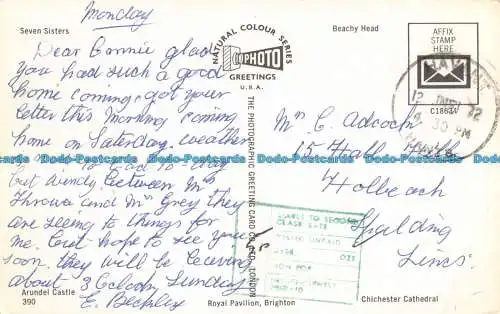 Monday
Seven Sisters
Beachy Head
Dear Connie glad
you had such a good
home coming got your
letter this morning coming
home on Saturday. weather
but windy between Mrs
Throwa and Mrs Grey they
are seeing to things for
me. but hope to see you
soon. they will be leaving
about 3 Oclock Sunday
E. Beckley
Arundel Castle
390
NATURAL COLOUR SERIES
PHOTO
GREETINGS
U.S.A.
THE PHOTOGRAPHIC GREETING CARD CO. LTD., LONDON
Royal Pavilion, Brighton
AFFIX
STAMP
HERE
C18634
12
30 PM
Mrs C Adcock
15 Hall Gate
Holbeach
Spalding
Lincs.
LIABLE TO SECOND
CLASS RATE
POSTED UNPAID
Chichester Cathedral
Dodo-Postcards Dodo-Postcards Dodo-Postcards Dodo-Postcards Dodo-Postcards